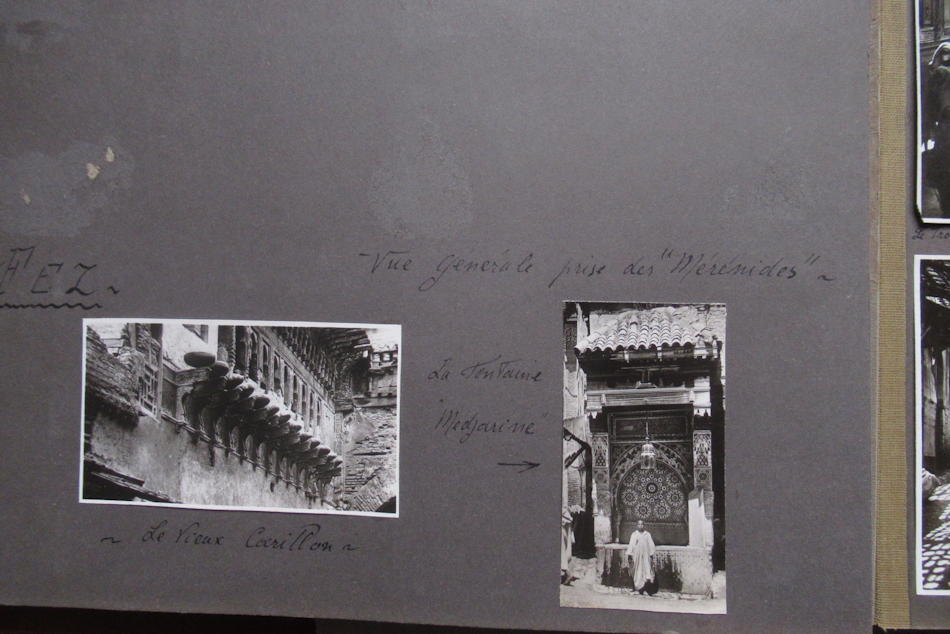 FEZ.
Vue générale prise des "Mérénides"
La Fontaine
"Medjarine"
Le Vieux Carillon
Le